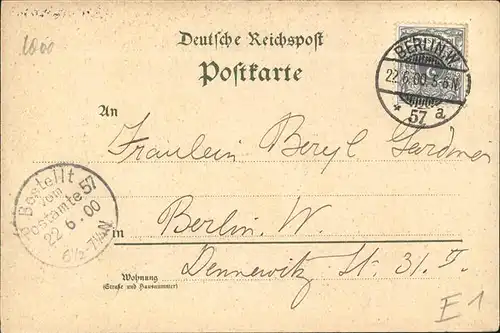 1000
Deutsche Reichspost
Postkarte
BERLIN.W.
22.6.00 5-6N
* 57 a.
An
Fräulein Beryl Gardner
Bestellt
vom
Postamte 57
22.6.00
6½-7½N
in Berlin. W.
Dennewitz St. 31. II.
Wohnung
(Straße und Hausnummer)
E1